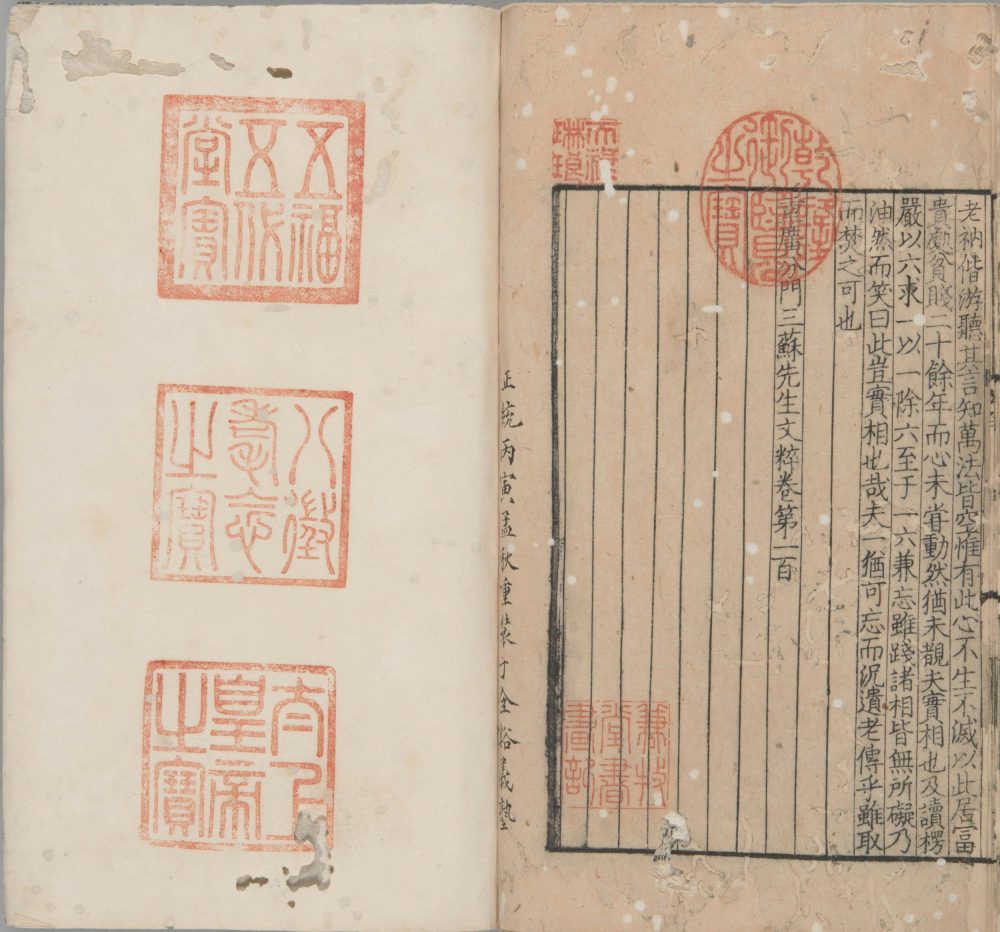 老衲偕游聽其言知萬法皆空惟有此心不生不滅以此居富
貴處貧賤二十餘年而心未甞動然猶未覩夫實相也及讀楞
嚴以六求一以一除六至于一六兼忘雖踐諸相皆無所礙乃
油然而笑曰此豈實相也哉夫一猶可忘而況遺老傳乎雖取
而焚之可也
廣分門三蘇先生文粹卷第一百
乾隆
御覽
之寶
天祿
琳琅
兼牧
堂書
畫記
正統丙寅孟秋重裝于全谿義塾
五福
五代
堂寶
八徵
耄念
之寶
太上
皇帝
之寶